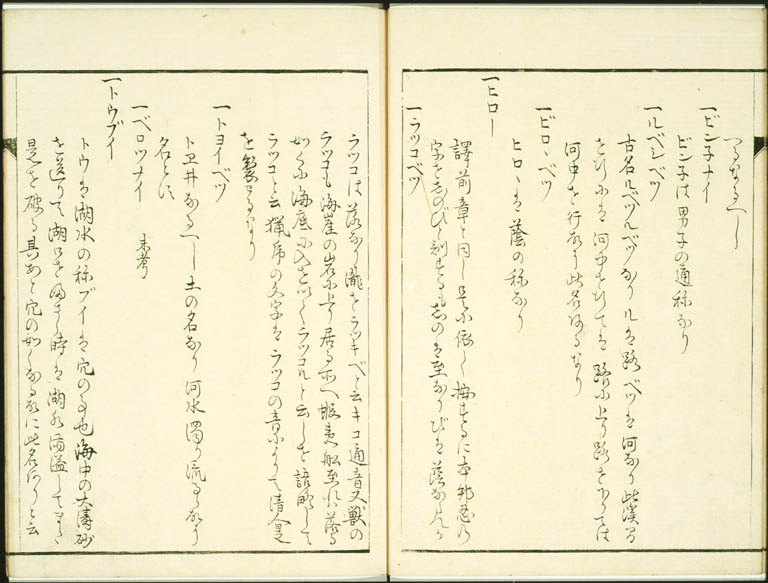 つるなるへし
一ビン子ナイ
ビン子は男子の通称なり
一ルベシベツ
古名ルベツルベツなりルは路ベツは河なり此渓間
を行小は河中を行ては路小上り路を下りては
河中を行故に此名あるなり
一ビロヽベツ
ヒロヽは蔭の称なり
一ヒロー
譯前章と同し是小依て按するに本邦忍の
字をしのびと訓せるもしのは至なりびは蔭なるへし
一ラツコベツ
ラツコは落なり瀧をラツキベと云キコ通音又獣の
ラツコも海崖の岩小上り居る所へ蝦夷船至れは落る
如くに海底に入を以てラツコルと云しを語略して
ラツコと云猟虎の文字はラツコの音小よりて清人是
を製るなり
一トヨイベツ
トヱ井なるへし土の名なり河水濁り流る故なり
名とす
一ベロツナイ 未考
一トウブイ
トウは湖水の称ブイは穴の事也海中の大濤砂
を送りて湖口を埋し時は湖水満溢して
是を破る其あと穴の如くなる故に此名ありと云